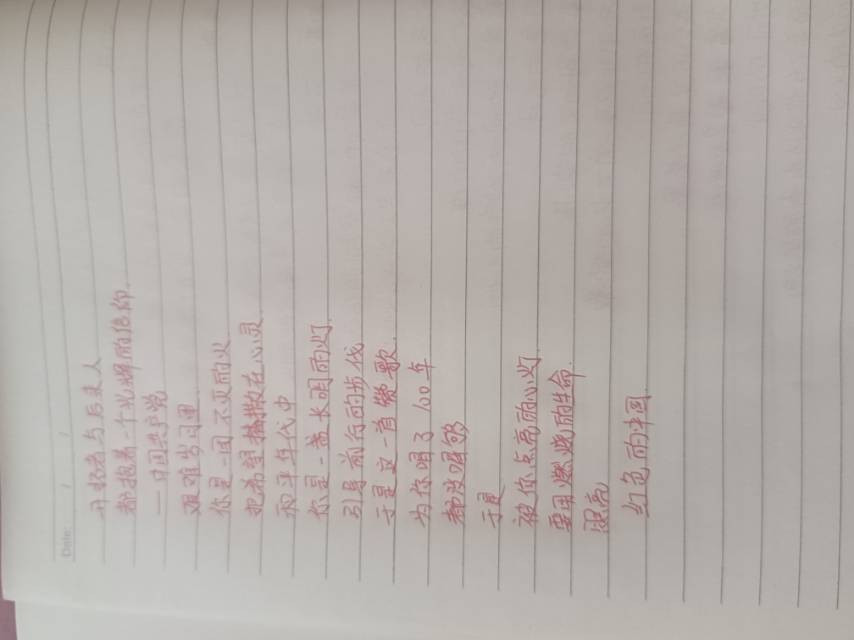 Date: / /
开拓者与后来人
都抱着一个光辉的信仰
一中国共产党
艰难岁月里
你是一团不灭的火
把希望播撒在心灵
和平年代中
你是一盏长明的灯.
引导前行的步伐
于是这一首赞歌.
为你唱了100年
都没唱够
于是
被你点亮的心灯.
要用燃烧的生命.
照亮
红色的中国.